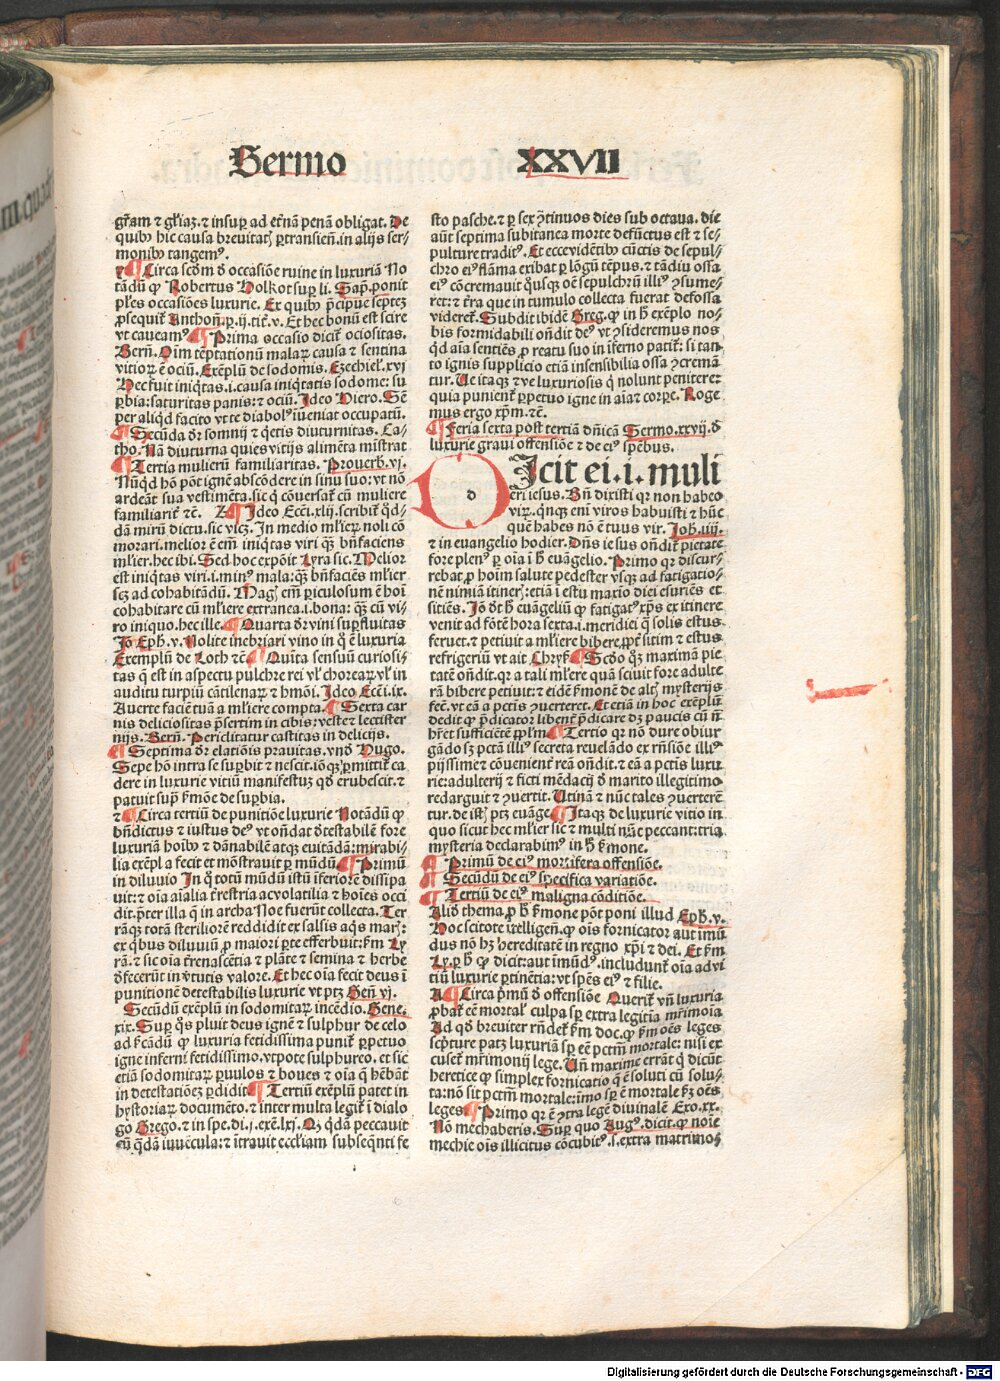 Sermo XXVII
gr̄am ⁊ gl'iaꝫ. ⁊ insuꝑ ad et̄nā penā obligat. De
quibꝰ hic causa breuitatꝭ ꝑtransien̄. in alijs ser⸗
monibꝰ tangemꝰ.
Circa scdm̄ ð occasiōe ruine in luxuriā No
tādū ꝙ Robertus Holkot suꝑ li. Sap̄. ponit
ples occasiōes luxurie. Ex quibꝰ p̄cipue septeꝫ
ꝓsequit᷑ Anthon̄. ꝑ. ij. tit᷑. v. Et hec bonū est scire
vt caueamꝰ ¶ Prima occasio dicit᷑ ociositas.
Bern̄. Oim̄ tēptationū malaꝝ causa ⁊ sentina
vitioꝝ ē ociū. Exēplū de sodomis. Ezechiel. xvj
Hec fuit iniq̄tas. i. causa iniq̄tatis sodome: su
ꝑbia: saturitas panis: ⁊ ociū. Ideo Hiero. Sē
per aliqd̄ facito vt te diabolꝰ iueniat occupatū.
¶ Secūda dr̄ somnij ⁊ q̄etis diuturnitas. Ca⸗
tho. Nā diuturna quies vitijs alimēta mīstrat
¶ Tertia mulierū familiaritas. Prouerb. vj.
Nūqd̄ hō pōt ignē abscōdere in sinu suo: vt nō
ardeāt sua vestimēta. sic q̄ cōuersat᷑ cū muliere
familiarit᷑ ⁊c̄. ¶ Ideo Ecc̄i. xlij. scribit᷑ q̄d⸗
dā mirū dictu. sic vlꝫ. In medio ml'ieꝝ noli cō
morari. melior ē em̄ iniq̄tas viri q̄ꝫ bn̄faciens
ml'ier. hec ibi. Sed hoc expōit Lyra sic. Melior
est iniq̄tas viri. i. minꝰ mala: q̄ꝫ bn̄faciēs ml'ier
sꝫ ad cohabitādū. Magꝭ em̄ ꝑiculosum ē hoī
cohabitare cū ml'iere extranea. i. bona: q̄ꝫ cū vi⸗
ro iniquo. hec ille. ¶ Quarta dr̄ vini suꝑfluitas
Jō Eph. v. Nolite inebriari vino in q̊ ē luxuria
Exemplū de Loth ⁊cē ¶ Quīta sensuū curiosi⸗
tas q̄ est in aspectu pulchre rei vl' choreaꝝ vl' in
auditu turpiū cātilenaꝝ ⁊ hmōi. Ideo Ecc̄i. ix.
Auerte faciē tuā a ml'iere compta. ¶ Sexta car
nis deliciositas p̄sertim in cibis: veste ⁊ lectister
nijs. Bern̄. Periclitatur castitas in delicijs.
¶ Septima dr̄ elatiōis prauitas. vnð Hugo.
Sepe hō intra se suꝑbit ⁊ nescit. iō qꝫ ꝑmittit᷑ ca
dere in luxurie vitiū manifestuꝫ qð erubescit. ⁊
patuit supͣ s̄mōe de suꝑbia.
¶ Circa tertiū de punitiōe luxurie Notādū ꝙ
bn̄dictus ⁊ iustus deꝰ vt on̄dat ðtestabilē fore
luxuriā hoībꝰ ⁊ dānabilē atqꝫ euitādā: mirabi⸗
lia exēpl'a fecit et mōstrauit ꝑ mūdū ¶ Primū
in diluuio In q̊ totū mūdū istū īferiorē dissipa
uit: ⁊ oīa aīalia t̄restria ac volatilia ⁊ hoīes occi
dit. p̄ter illa q̄ in archa Noe fuerūt collecta. Ter
rāqꝫ totā steriliorē reddidit ex salsis aq̄s marꝭ:
ex q̄bus diluuiū ꝓ maiori ꝑte efferbuit: ẜm Ly
rā. ⁊ sic oīa t̄renascētia ⁊ plāte ⁊ semina ⁊ herbe
ðfecerūt in v̄tutis valore. Et hec oīa fecit deus ī
punitionē detestabilis luxurie vt ptꝫ Gen̄. vj.
Secūdū exēplū in sodomitaꝝ incēdio. Gene.
xix. Suꝑ q̄s pluit deus ignē ⁊ sulphur de celo
ad n̄cādū ꝙ luxuria fetidissima punit᷑ ꝑpetuo
igne inferni fetidissimo. vtpote sulphureo. et sic
etiā sodomitaꝝ ꝑuulos ⁊ boues ⁊ oīa q̄ hēbāt
in detestatiōeꝫ ꝑdidit ¶ Tertiū exēplū patet in
hystoriaꝝ documēto. ⁊ inter multa legit᷑ ī dialo
go Grego. ⁊ in spe. di. j. exē. lxj. Qꝫ q̄dā peccauit
cū q̄dā iuuēcula: ⁊ ītrauit eccl'iam subseq̄nti fe
sto pasche. ⁊ ꝑ sex ꝯtinuos dies sub octaua. die
aūt septima subitanea morte defūctus est ⁊ se⸗
pulture traditꝰ. Et ecce vidētibꝰ cūctis de sepul⸗
chro eiꝰ flāma exibat ꝑ lōgū tēpus. ⁊ tādiu ossa
eiꝰ cōcremauit q̊usqꝫ oē sepulchrū illiꝰ ꝯsume⸗
ret: ⁊ t̄ra que in tumulo collecta fuerat defossa
videret᷑. Subdit ibidē Greg. ꝙ in h̄ exēplo no⸗
bis formidabili on̄dit deꝰ vt ꝯsideremus nos
qd̄ aīa sentiēs ꝓ reatu suo in īferno patit᷑: si tan⸗
to ignis supplicio etiā insensibilia ossa ꝯcremā
tur. Ue itaqꝫ ⁊ ve luxuriosis q̄ nolunt penitere:
quia punient᷑ ꝑpetuo igne in aīa ⁊ corꝑe. Roge
mus ergo xp̄m. ⁊c̄.
¶ Feria sexta post tertiā dn̄icā Sermo. xxvij. ð
luxurie graui offensiōe ⁊ de eiꝰ sp̄ebus.
Dicit ei. i. muli
eri iesus. Bn̄ dixisti qr non habeo
viꝝ. qnqꝫ em̄ viros habuisti ⁊ hūc
quē habes nō ē tuus vir. Joh. iiij.
⁊ in euangelio hodier. Dn̄s iesus on̄dit᷑ pietate
fore plenꝰ ꝑ oīa ī h̄ euāgelio. Primo qr discur⸗
rebat ꝓ hoīm salute pedester vsqꝫ ad fatigatio⸗
nē nimiā itineris: etiā ī estu maxīo diei esuriēs et
sitiēs. Jō ðt h̄ euāgeliū ꝙ fatigatꝰ xp̄s ex itinere
venit ad fōtē hora sexta. i. meridiei q̄ solis estus
feruet: ⁊ petiuit a ml'iere bibere ꝓpt̄ sitim ⁊ estus
refrigeriū vt ait Chrys. ¶ Scðo qꝫ maximā pie
tatē on̄dit. qr a tali ml'iere quā sciuit fore adulte
rā bibere petiuit: ⁊ eidē s̄monē de altꝭ mysterijs
fec̄. vt eā a pctīs ꝯuerteret. Et etiā in hoc exēplū
dedit ꝙ p̄dicator libent᷑ p̄dicare dꝫ paucis cū n̄
hr̄et sufficiētē ꝓplm̄ ¶ Tertio qr nō dure obiur
gādo sꝫ pctā illiꝰ secreta reuelādo ex rn̄siōe illiꝰ
pijssime ⁊ cōuenient᷑ reā on̄dit. ⁊ eā a pctīs luxu
rie: adulterij ⁊ ficti mēdacij ð marito illegitimo
redarguit ⁊ ꝯuertit. Utinā ⁊ nūc tales ꝯuerterē
tur. de istꝭ ptꝫ euāge. ¶ Itaqꝫ de luxurie vitio in
quo sicut hec ml'ier sic ⁊ multi nūc peccant: tria
mysteria declarabimꝰ in h̄ s̄mone.
¶ Primū de eiꝰ mortifera offensiōe.
¶ Secūdū de eiꝰ specifica variatiōe.
¶ Tertiū de eiꝰ maligna cōditiōe.
Aliđ thema ꝓ h̄ s̄mone pōt poni illud Eph. v.
Hoc scitote ītelligen̄. ꝙ ois fornicator aut imū
dus nō hꝫ hereditatē in regno xp̄i ⁊ dei. Et ẜm
Ly. ꝑ h̄ ꝙ dicit: aut īmūdꝰ. includunt᷑ oīa ad vi
tiū luxurie ꝑtinētia: vt sp̄es eiꝰ ⁊ filie.
¶ Circa p̄mū ð offensiōe Querit᷑ vn̄ luxuria
ꝓbat᷑ eē mortalꝭ culpa sꝑ extra legitīa mr̄imoīa
Ad qð breuiter rn̄det᷑ ẜm doc. ꝙ ẜm oēs leges
scp̄ture patꝫ luxuriā sꝑ eē pctm̄ mortale: nisi ex
cuset᷑ mr̄imonij lege. Un̄ maxime errāt q̄ dicūt
heretice ꝙ simplex fornicatio q̄ ē soluti cū solu⸗
ta: nō sit pctm̄ mortale: īmo sꝑ ē mortale ẜm oēs
leges ¶ Primo qr ē ꝯtra legē diuinalē Exo. xx.
Nō mechaberis. Suꝑ quo Augꝰ. dicit. ꝙ noīe
mechie ois illicitus cōcubitꝰ. s. extra matrimoi
Digitalisierung gefördert durch die Deutsche Forschungsgemeinschaft - DFG